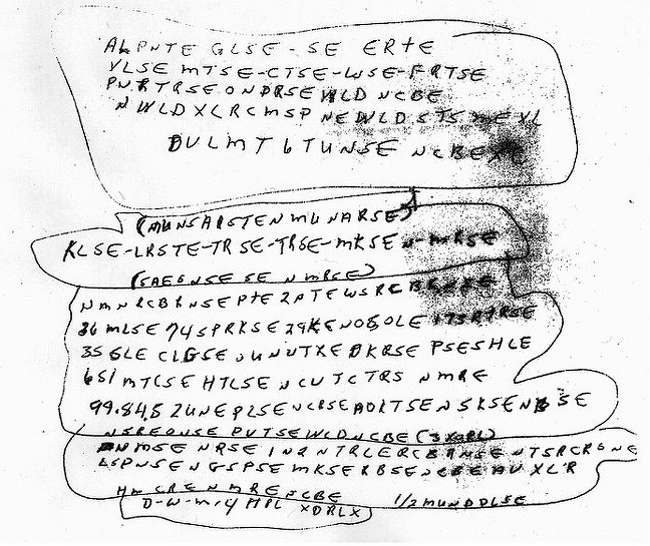 ALPNTE GLSE-SE ERTE
VLSE MTSE-CTSE-WSE-FRTSE
PNRTRSEONDRSEWLD NCBE
NWLDXLRCMSP NEWLDSTSMEXL
DULMT6TUNSE NCBEXC
(MUNSARSTENMUNARSE)
KLSE-LRSTE-TRSE-TRSE-MKSEN-MRSE
(SAEGNSESE NMRSE)
NMNRCBRNSEPTE2PTEWSRCBRNSE
36MLSE74SPRKSE29KENOSOLE173RTRSE
35GLE CLGSEUNUTXEDKRSE PSESHLE
651MTCSEHTLSENCUTCTRS NMRE
99.84.5 2UNEPLSENCRSEAOLTSENSKSENBSE
NSREONSE PUTSEWLDNCBE (3XORL)
NMSE NRSE IN2NTRLERCBRNSENTSRCRONE
LSPNSENGSPSE MKSERBSENCBEAUXLR
HM CRENMRENCBE 1/2MUNDDLSE
D-W-M-4 HPL XDRLX